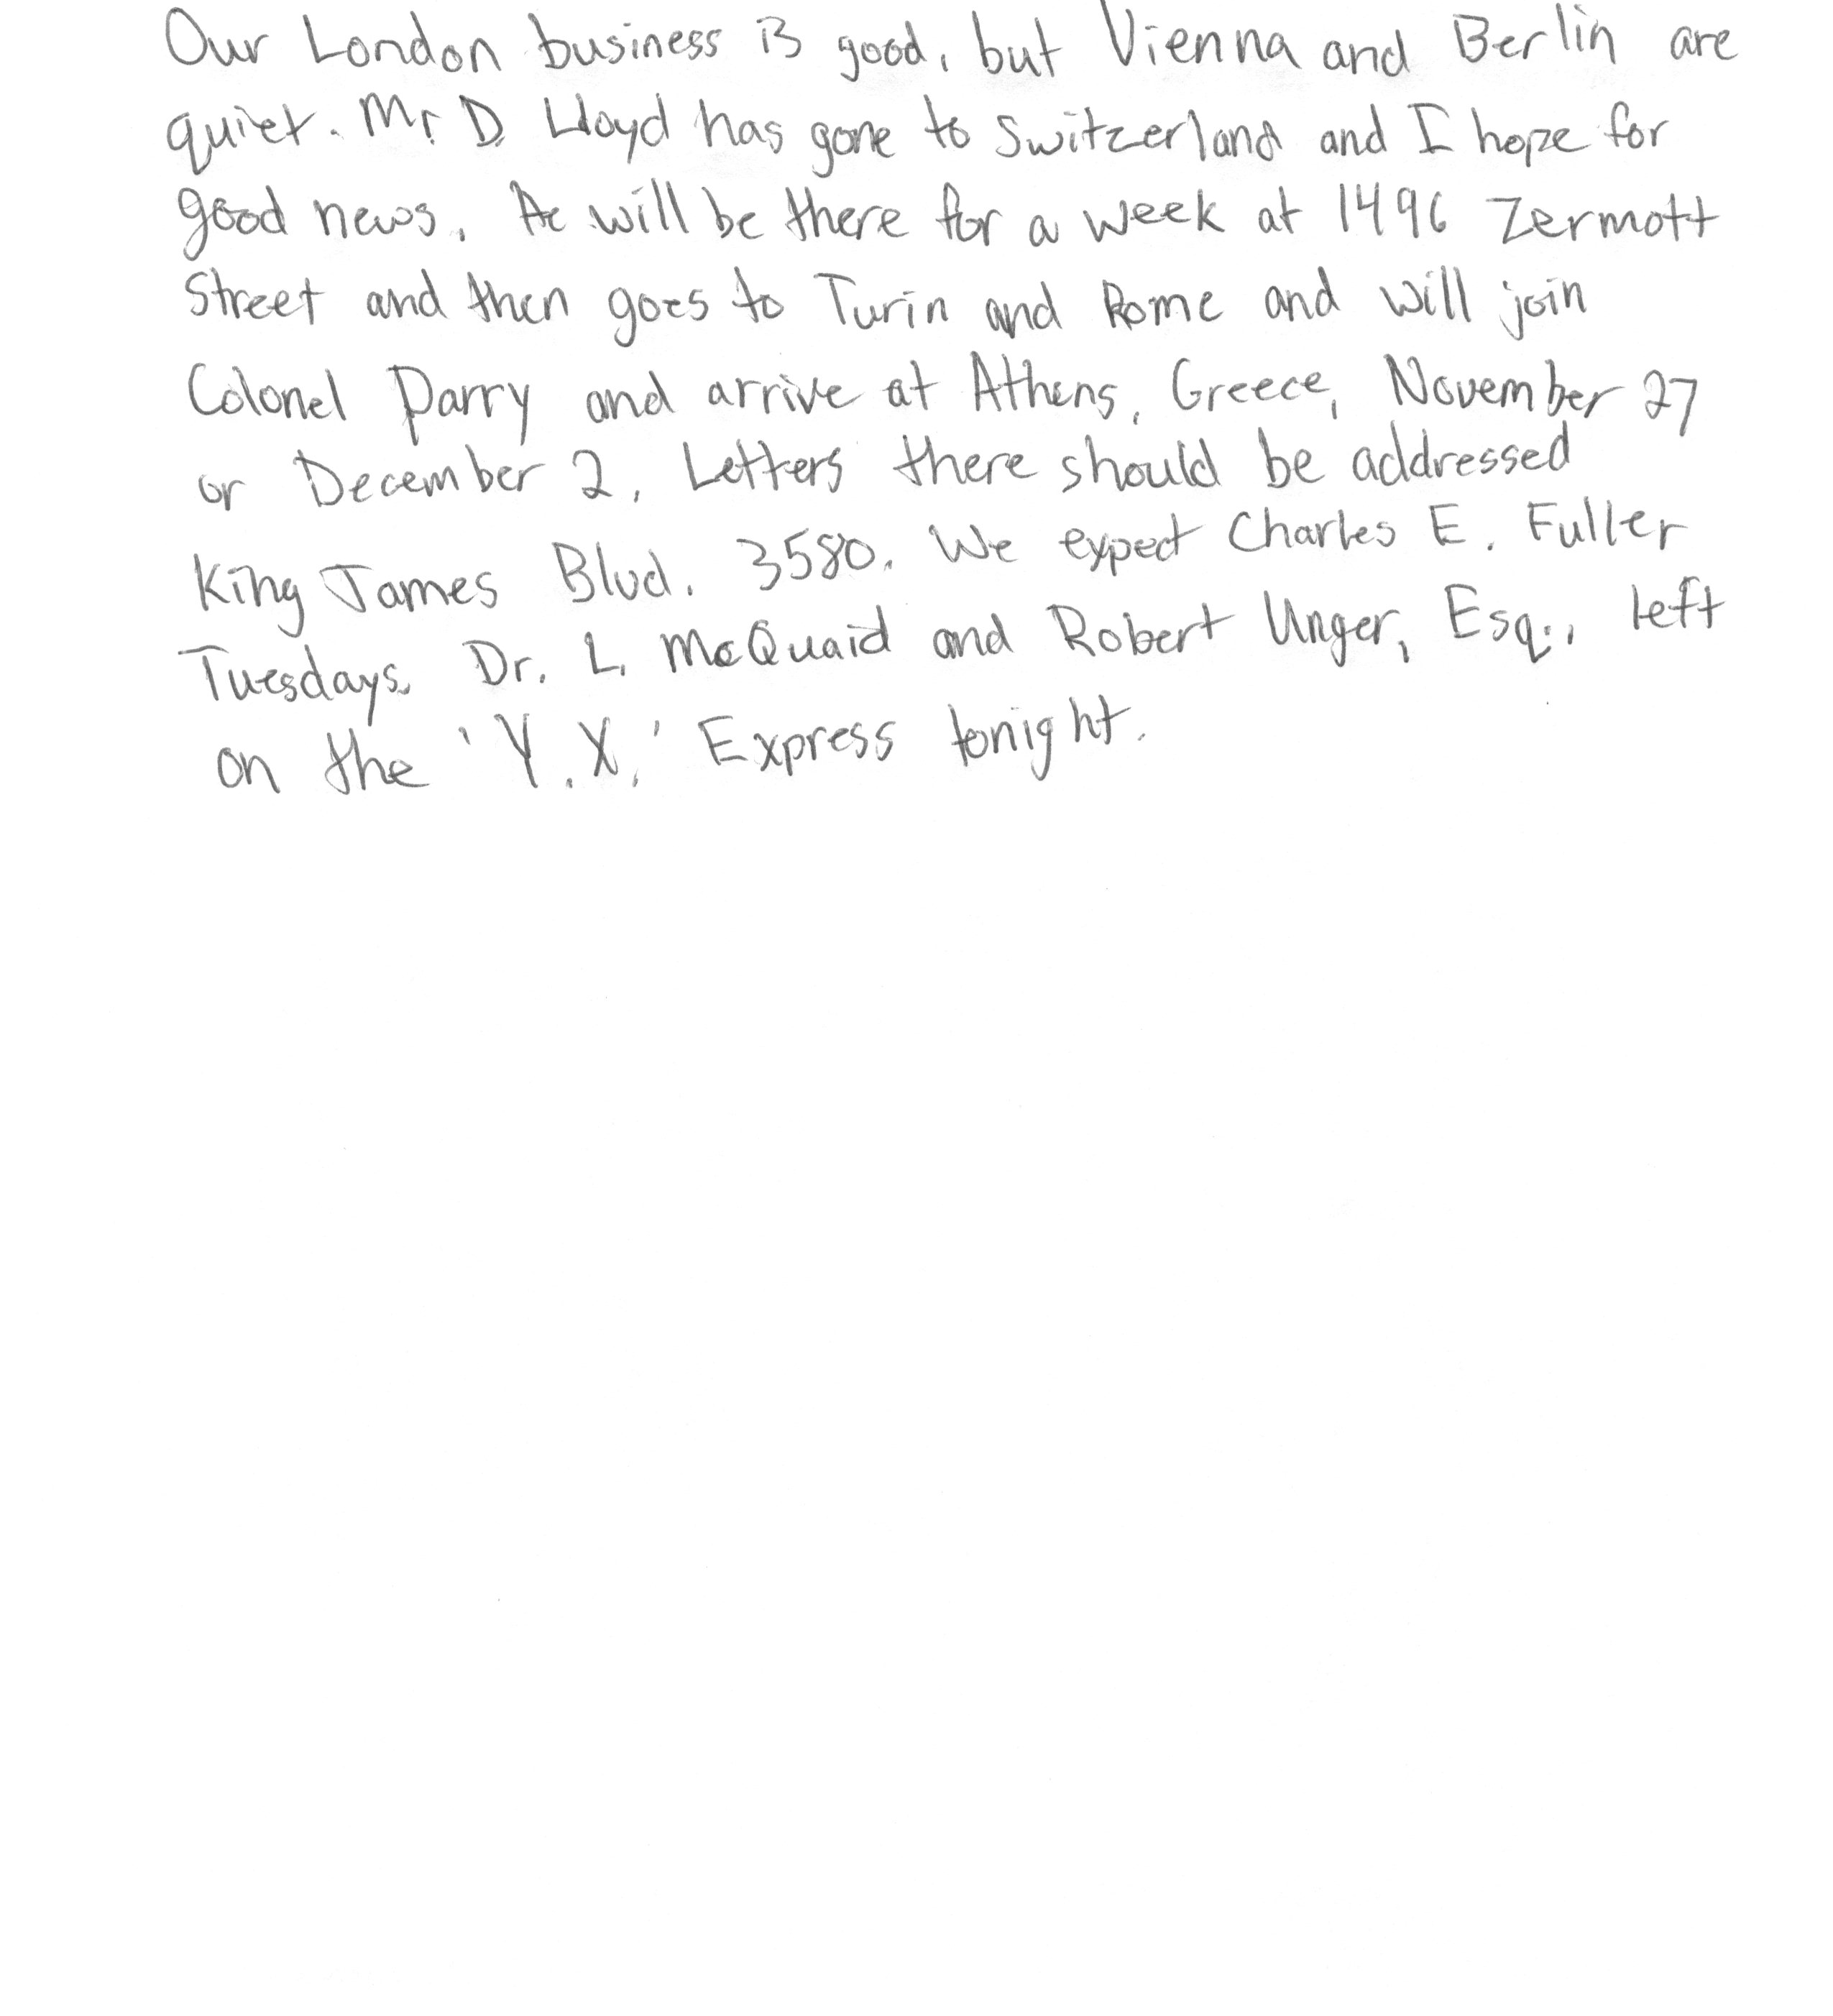 Our London business is good, but Vienna and Berlin are
quiet. Mr. D. Lloyd has gone to Switzerland and I hope for
good news. He will be there for a week at 1496 Zermott
Street and then goes to Turin and Rome and will join
Colonel Parry and arrive at Athens, Greece, November 27
or December 2. Letters there should be addressed
King James Blvd. 3580. We expect Charles E. Fuller
Tuesdays. Dr. L. McQuaid and Robert Unger, Esq., left
on the 'Y.X.' Express tonight.